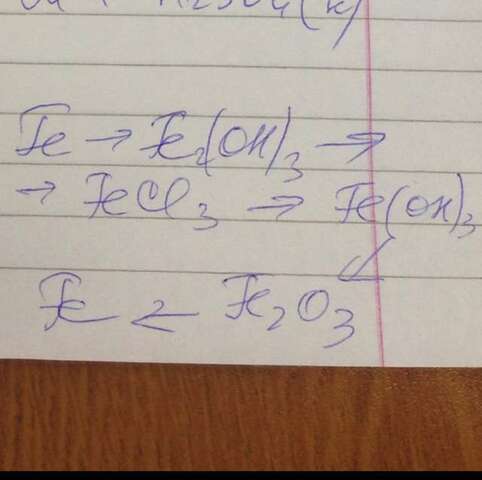 H2SO4(к)
Fe → Fe2(OH)3 →
→ FeCl3 → Fe(OH)3
Fe ← Fe2O3